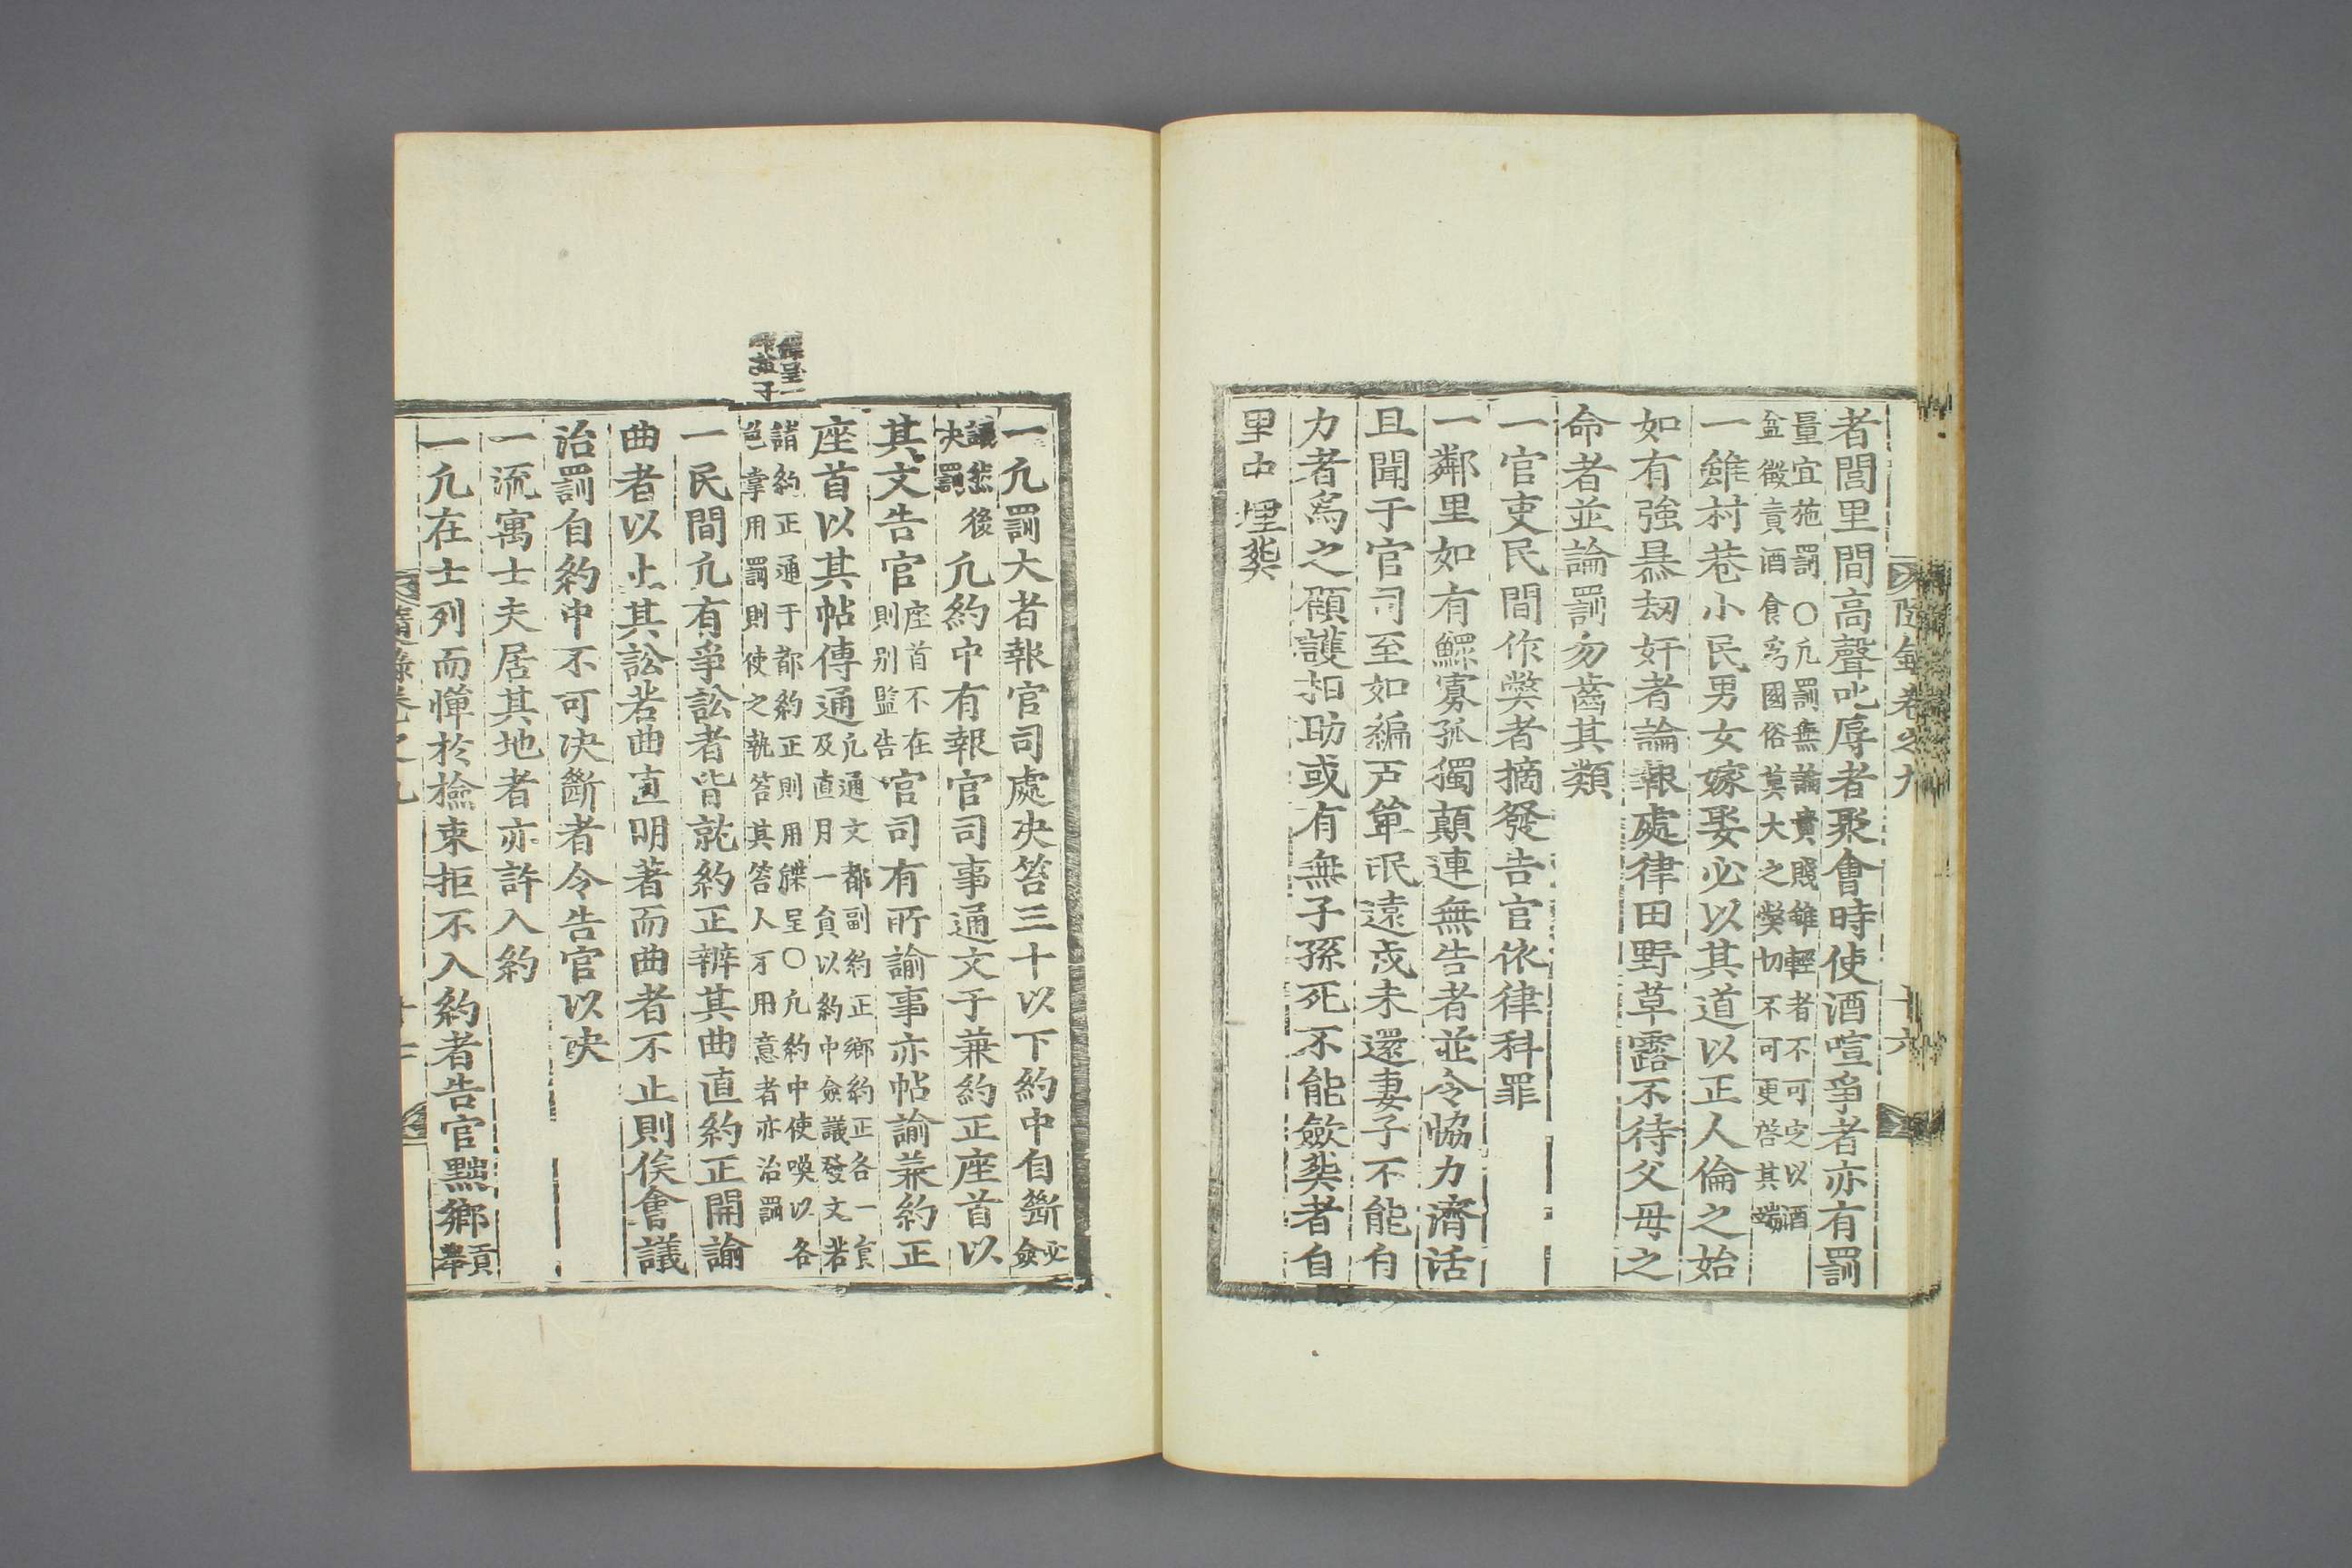 隨錄卷之九
十六
者閭里間高聲叱辱者聚會時使酒喧爭者亦有罰
量宜施罰○凢罰無論貴賤雖輕者不可定以酒
盆徵責酒食爲國俗莫大之獘切不可更啓其端
一雖村巷小民男女嫁娶必以其道以正人倫之始
如有強暴刼奸者論報處律田野草露不待父母之
命者並論罰勿齒其類
一官吏民間作獘者摘發告官依律科罪
一鄰里如有鰥寡孤獨顛連無告者並令恊力濟活
且聞于官司至如編戸單氓遠戍未還妻子不能自
力者爲之顧護扣助或有無子孫死不能斂葬者自
里中埋葬
一凢罰大者報官司處决笞三十以下約中自斷必
僉
議然後
决罰
凢約中有報官司事通文于兼約正座首以
其文告官
座首不在
則別監告
官司有所諭事亦帖諭兼約正
座首以其帖傳通
凢通文都副約正鄉約正各一員
及直月一員以約中僉議發文若
諸約正通于都約正則用牒呈○凢約中使喚以各
邑掌用罰則使之執笞其笞人不用意者亦治罰
一民間凢有爭訟者皆就約正辨其曲直約正開諭
曲者以止其訟若曲直明著而曲者不止則俟會議
治罰自約中不可决斷者令告官以决
一流寓士夫居其地者亦許入約
一凢在士列而憚於檢束拒不入約者告官黜鄉
貢
舉